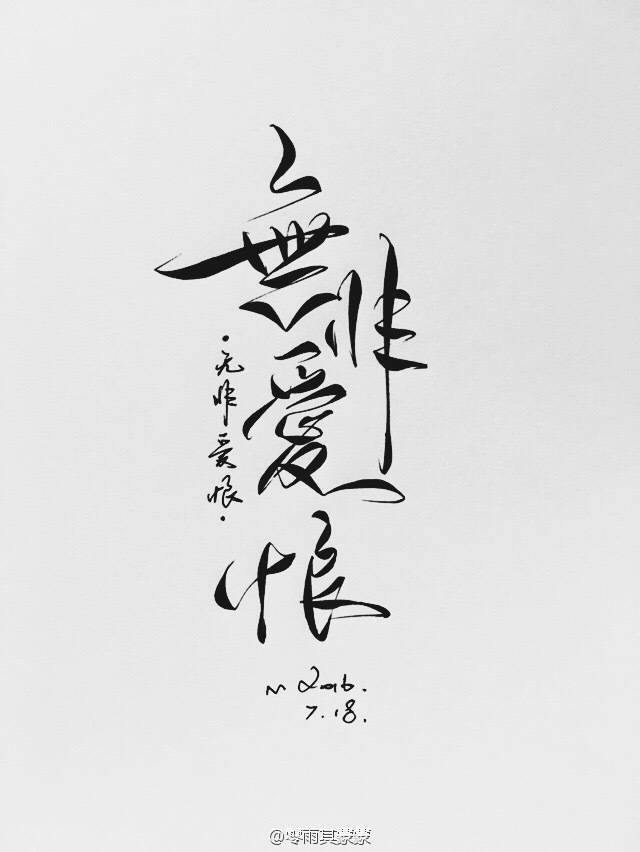 無非愛恨
·无非爱恨·
m 2016.
7.18.
@零雨其蒙蒙